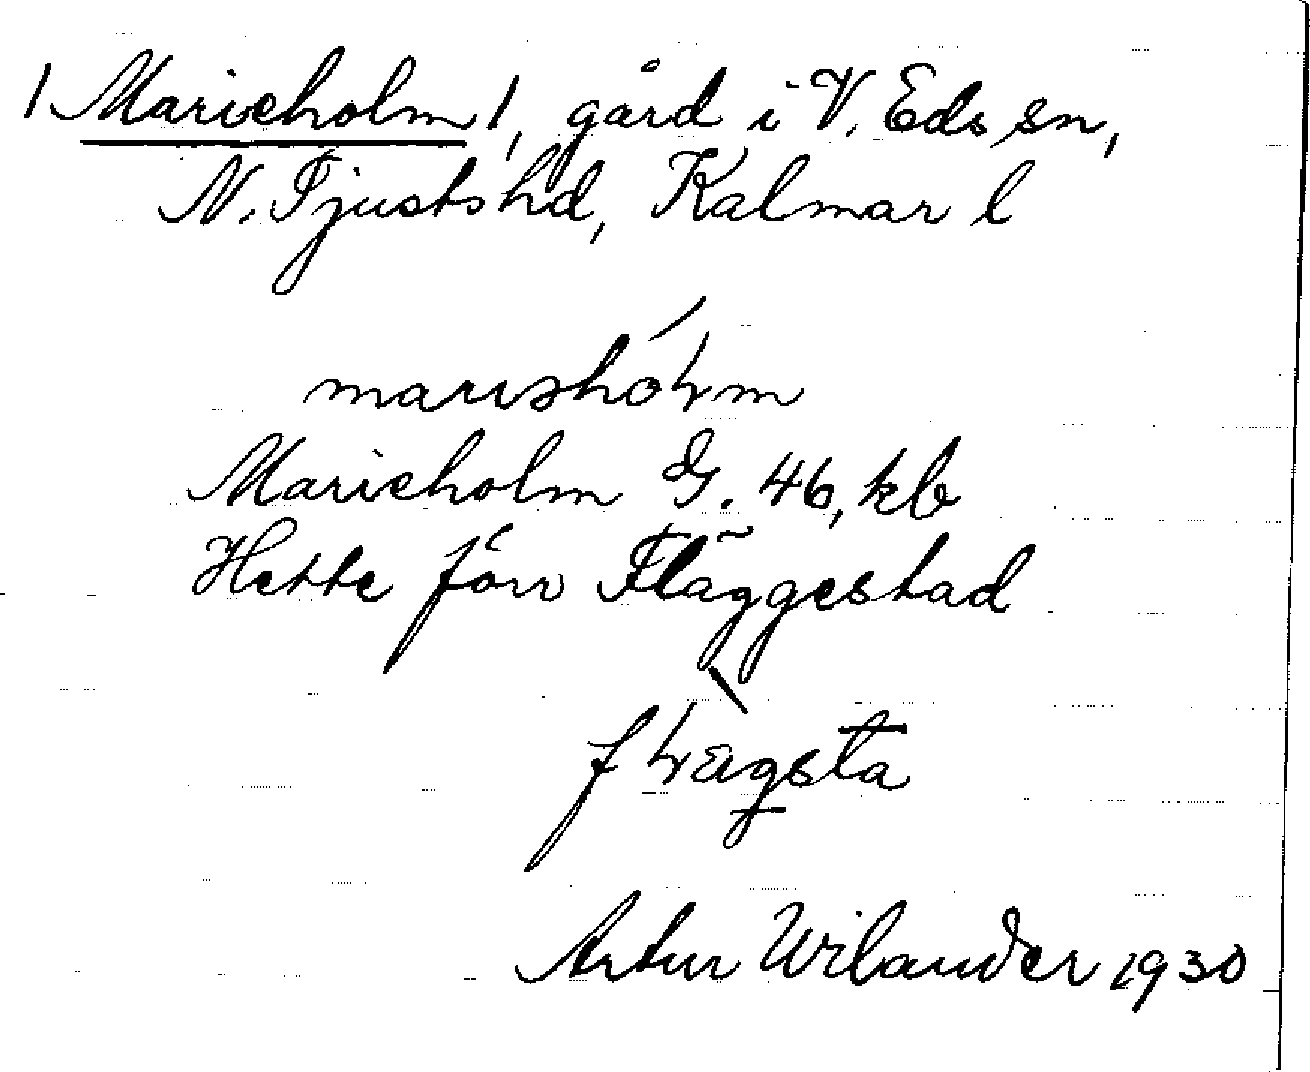 / Marieholm /, gård i V. Eds sn,
N. Tjusts hd, Kalmar l
marishóɫm
Marieholm G. 46, kb
Hette förr Fläggestad
fɫægsta
Artur Wilander 1930